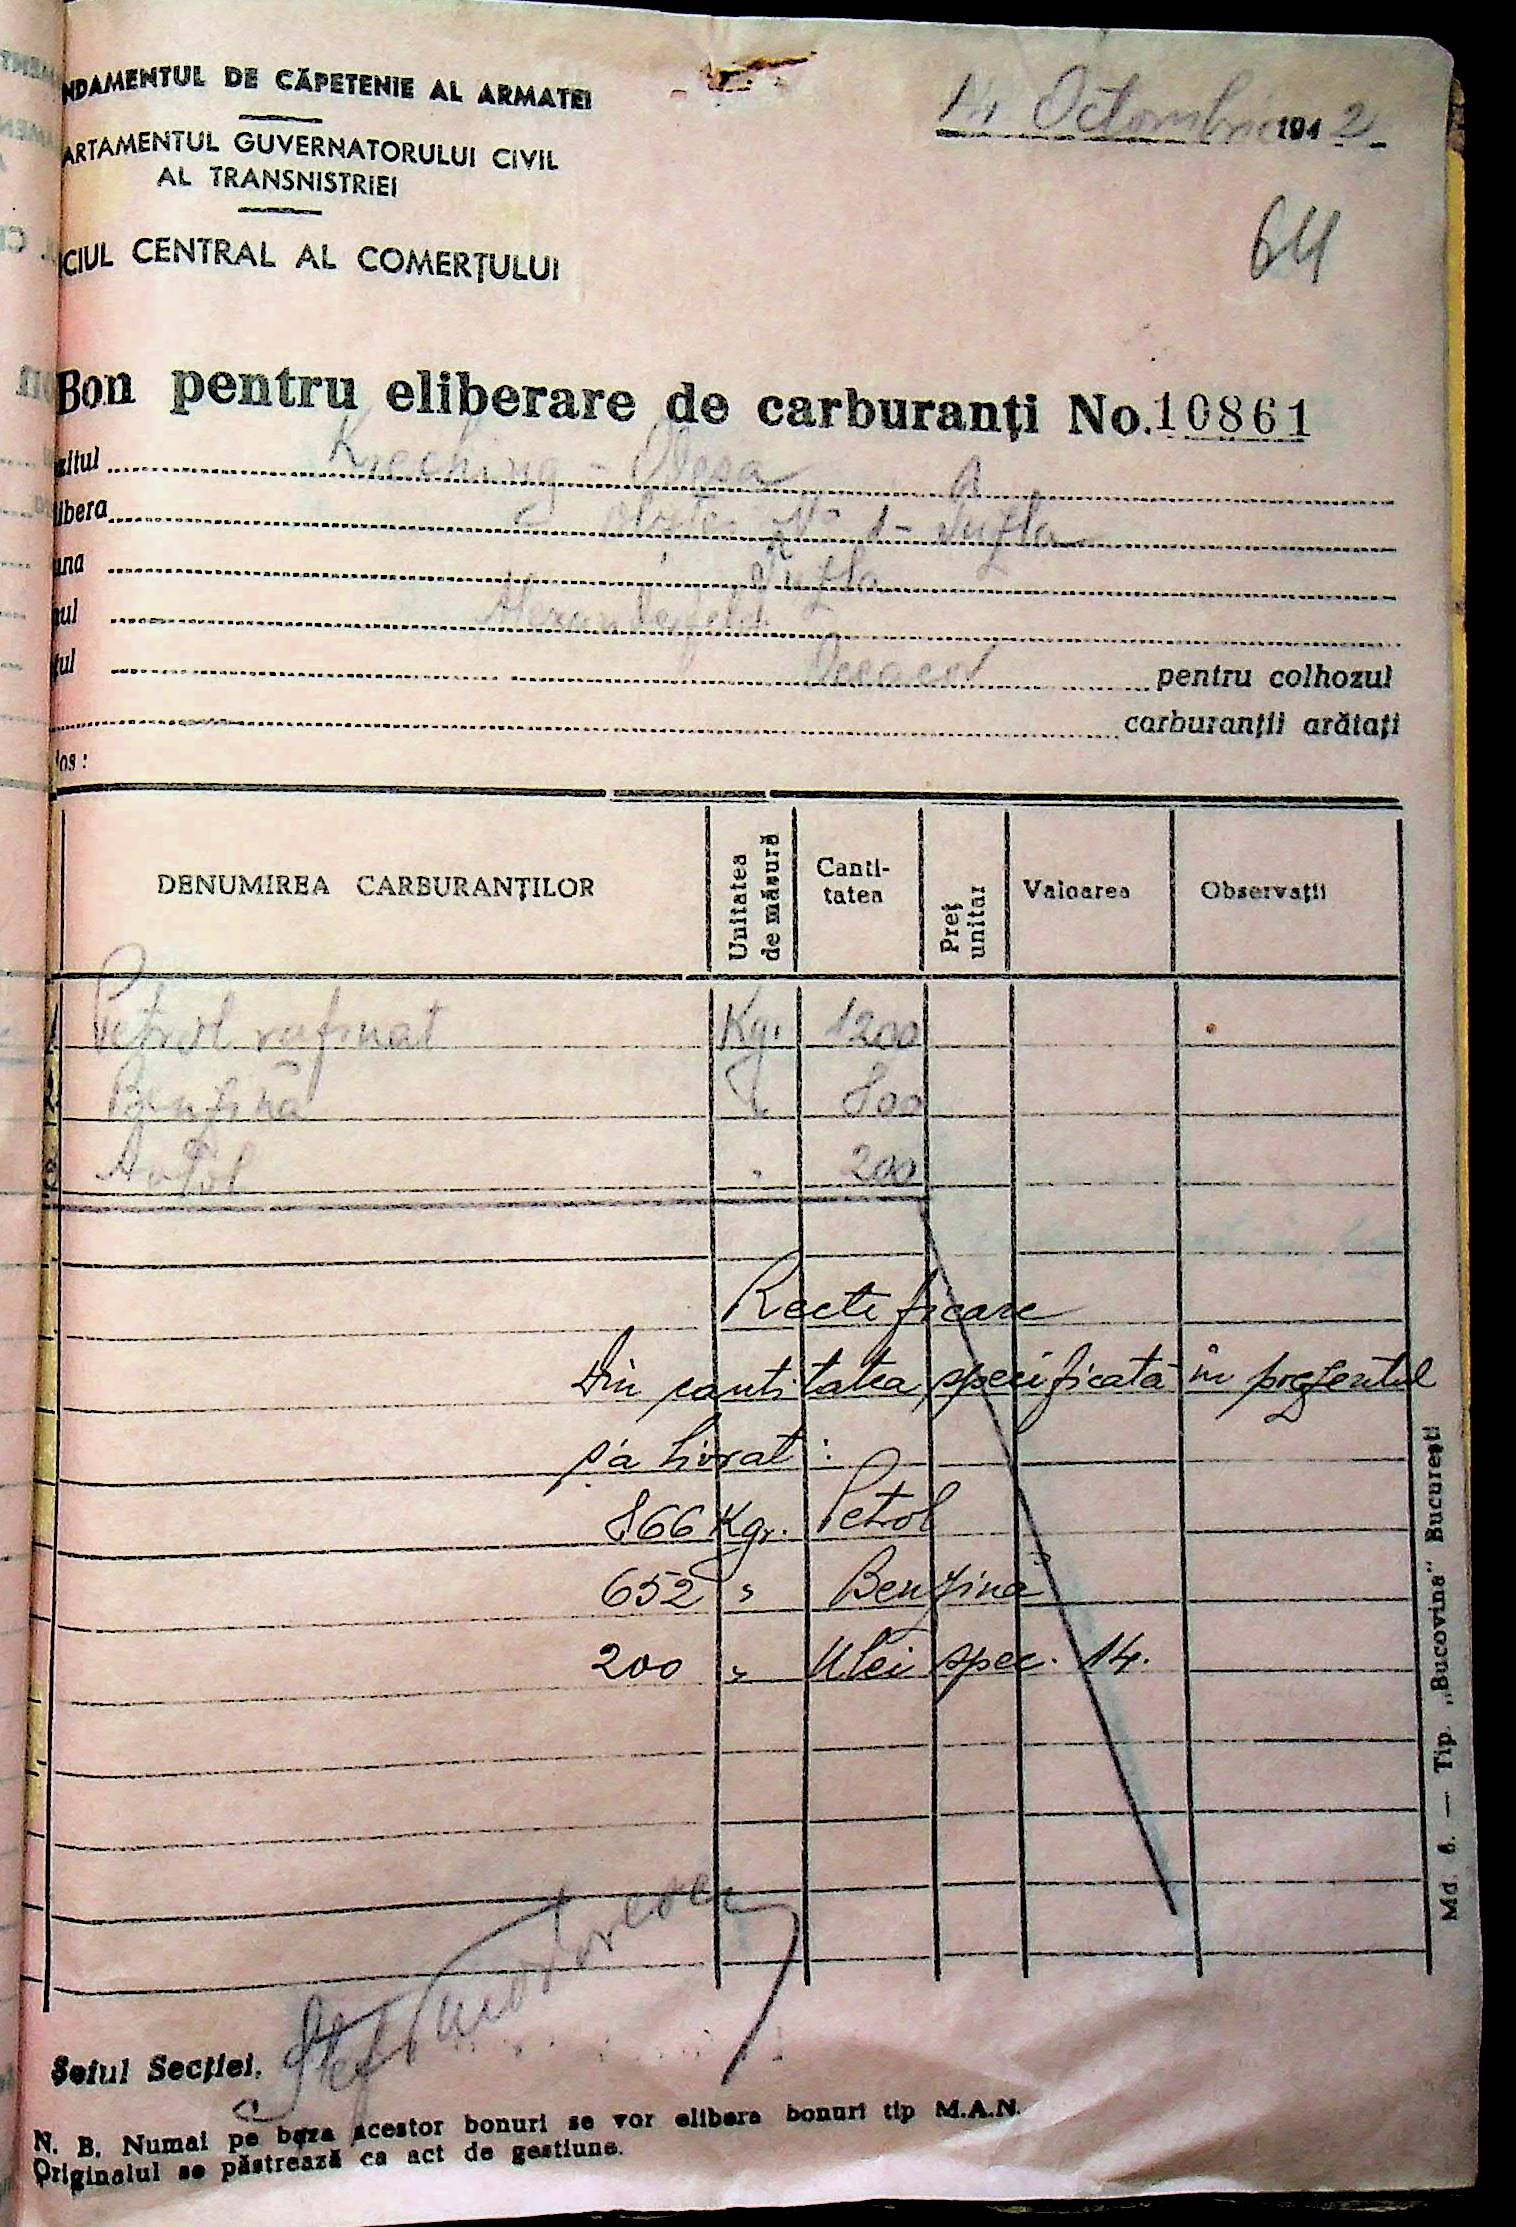 NDAMENTUL DE CĂPETENIE AL ARMATEI
ARTAMENTUL GUVERNATORULUI CIVIL
AL TRANSNISTRIEI
CIUL CENTRAL AL COMERȚULUI
14 Octombrie 1942
64
Bon pentru eliberare de carburanți No. 10861
zitul - Odesa
libera No 1 - Suzla
una Suzla
nul Alexanderfeld
țul Oceacov pentru colhozul
carburanții arătați
os:
DENUMIREA CARBURANȚILOR Unitatea de măsură Canti-tatea Preț unitar Valoarea Observații
Petrol rafinat Kg. 1200
Benzină " 800
Avtol " 200
Rectificare
Din cantitatea specificată în prezentul
s'a livrat:
866 Kgr. Petrol
652 " Benzină
200 " Ulei spec. 14.
Șeful Secției,
N. B. Numai pe baza acestor bonuri se vor elibera bonuri tip M.A.N.
Originalul se păstrează ca act de gestiune.
Md. 6. — Tip. „Bucovina" București